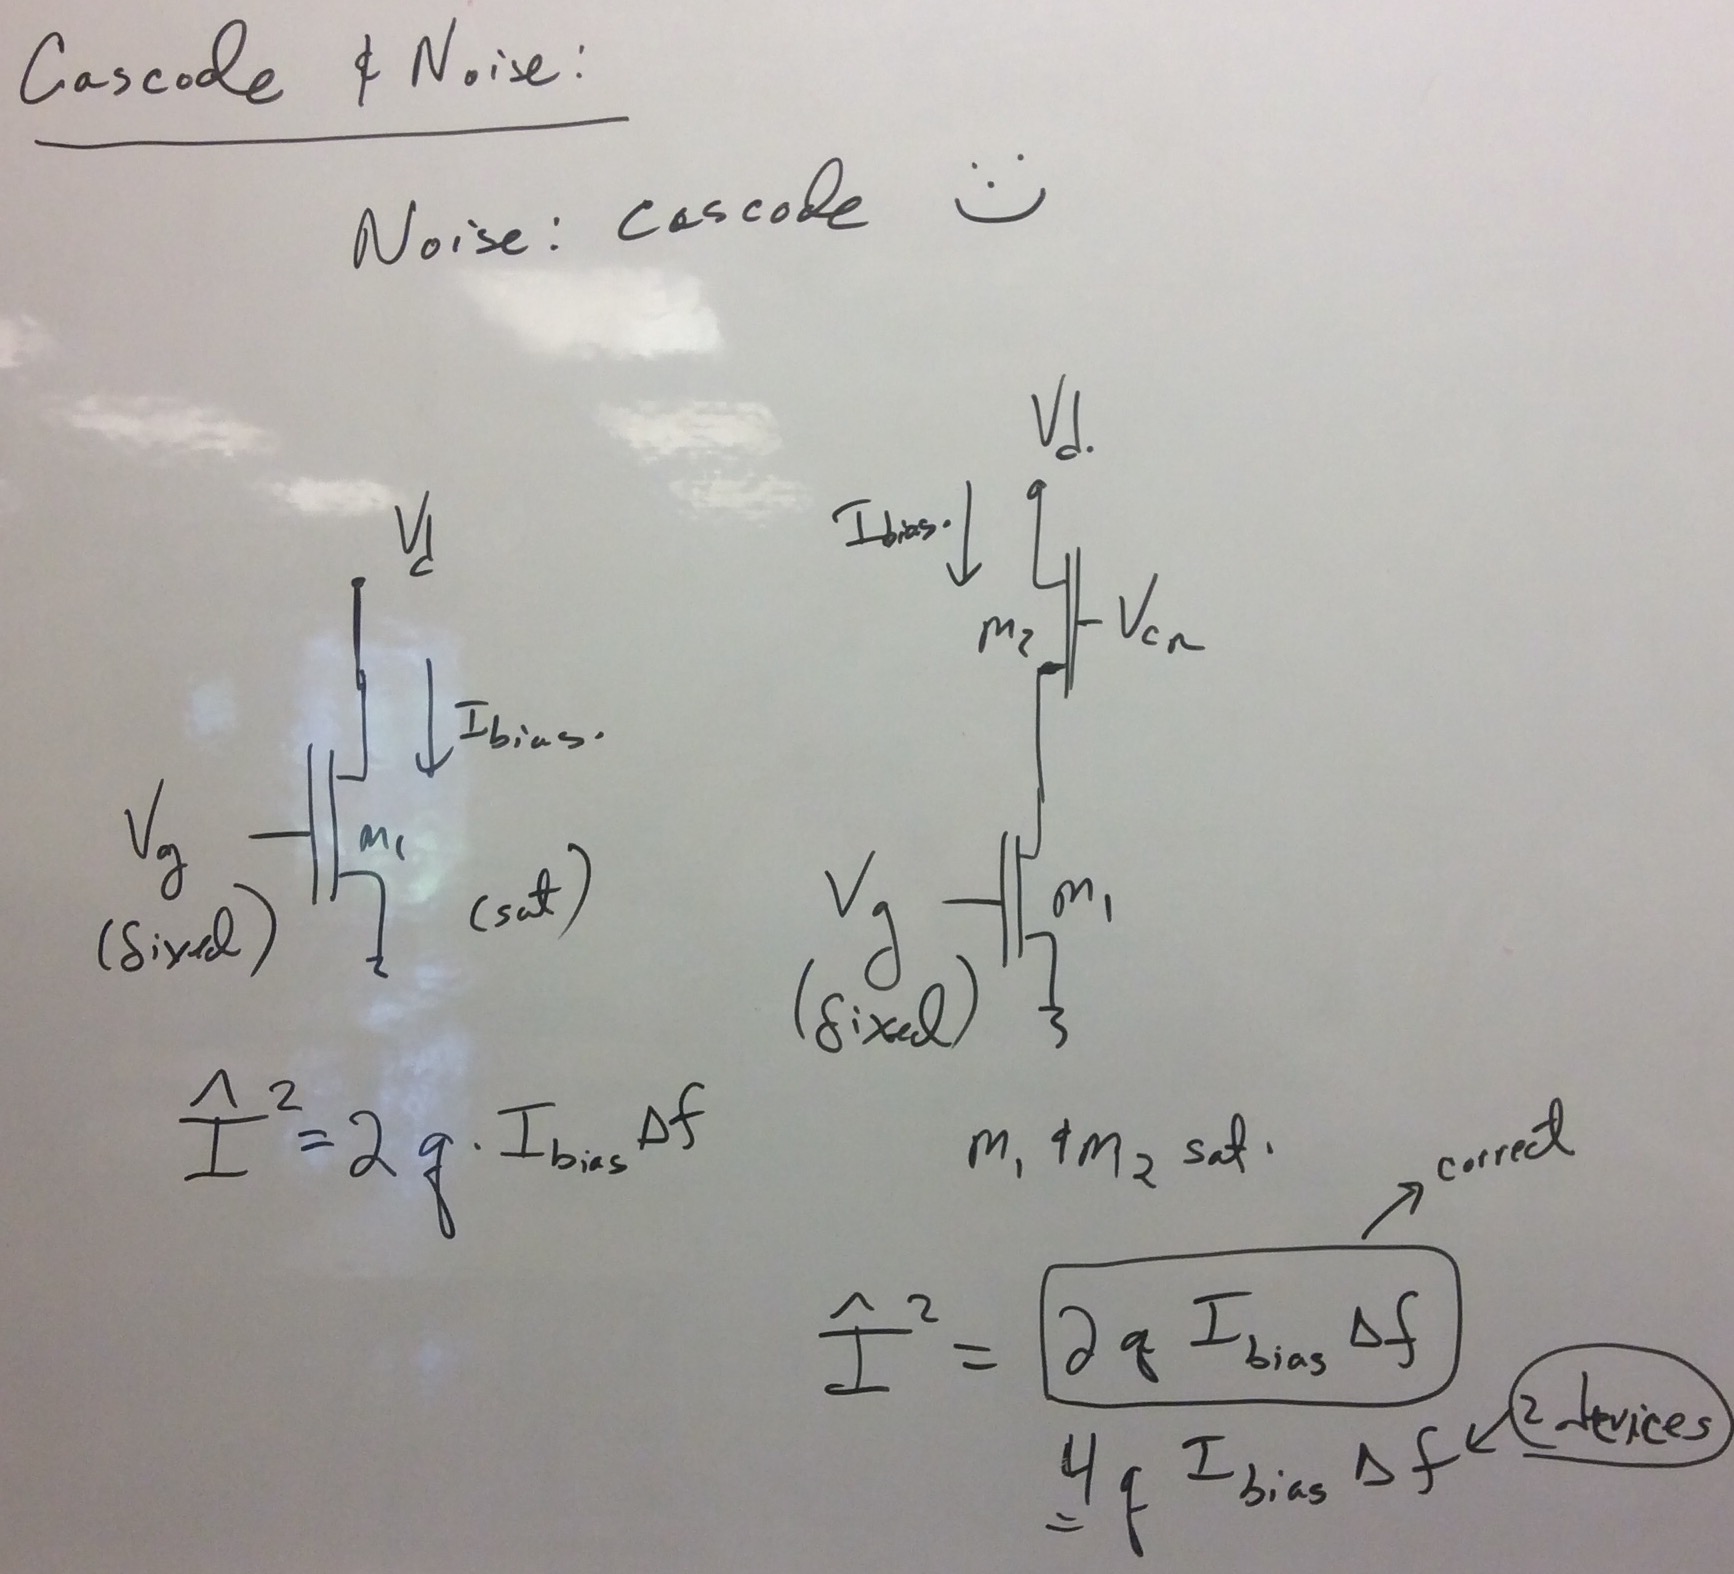 Cascode & Noise:
Noise: Cascode
Vd
Ibias.
Vg
M1
(fixed)
(sat)
Î² = 2q · Ibias Δf
Vd.
Ibias.
M2
Vcn
Vg
M1
(fixed)
M1 & M2 sat.
correct
Î² = 2q Ibias Δf
= 4q Ibias Δf
2 devices